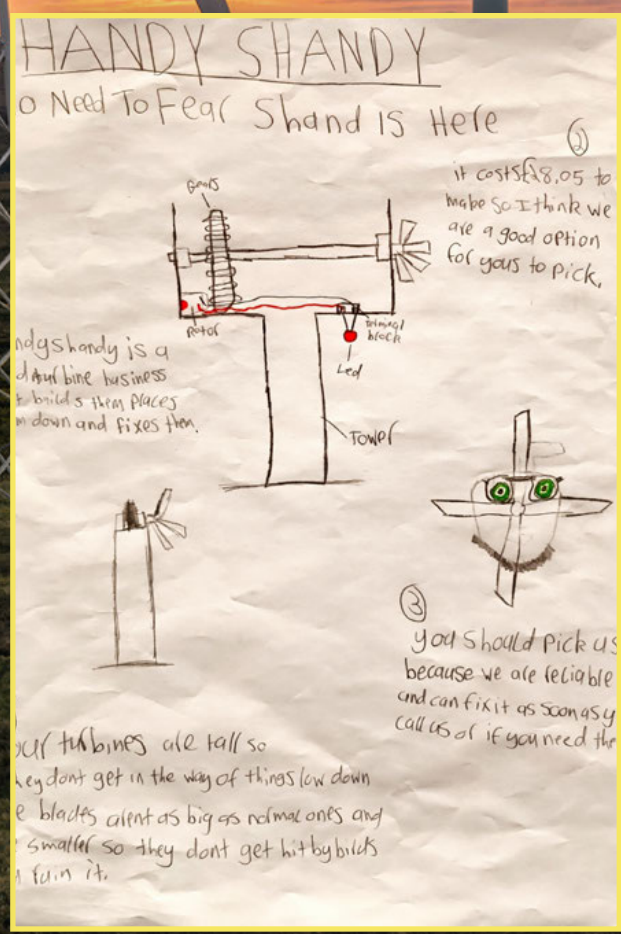 HANDY SHANDY
o Need To Fear Shand Is Here
②
it costs £28.05 to
make so I think we
are a good option
for yous to pick.
Gears
Rotor
terminal
block
Led
Tower
ndyshandy is a
d turbine business
t builds them places
m down and fixes them.
③
you should pick us
because we are reliable
and can fix it as soon as y
call us or if you need the
our turbines are tall so
hey dont get in the way of things low down
e blades arent as big as normal ones and
smaller so they dont get hit by birds
ruin it.